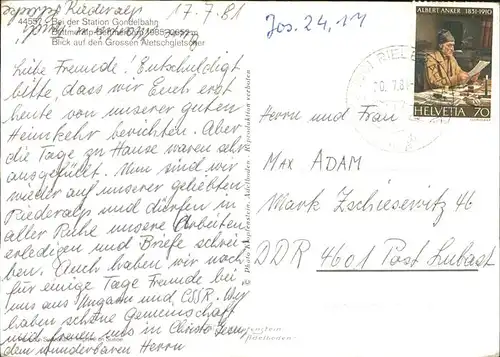 17.7.81
44557 Bei der Station Gondelbahn
Blick auf den Grossen Aletschgletscher
Liebe Freunde! Entschuldigt
bitte, dass wir Euch erst
heute von unserer guten
Heimkehr berichten. Aber
die Tage zu Hause waren sehr
ausgefüllt. Nun sind wir
wieder auf unserer geliebten
Riederalp und dürfen in
aller Ruhe unsere Arbeiten
erledigen und Briefe schrei-
ben. Auch haben wir noch
für einige Tage Freunde bei
uns aus Ungarn und CSSR. Wir
haben schöne Gemeinschaft
und freuen uns in Christo Jesu
dem wunderbaren Herrn
Reproduktion verboten
Jos. 24, 14
ALBERT ANKER 1831-1910
HELVETIA 70
Herrn und Frau
MAX ADAM
Mark Zschiesewitz 46
DDR 4601 Post Lubast